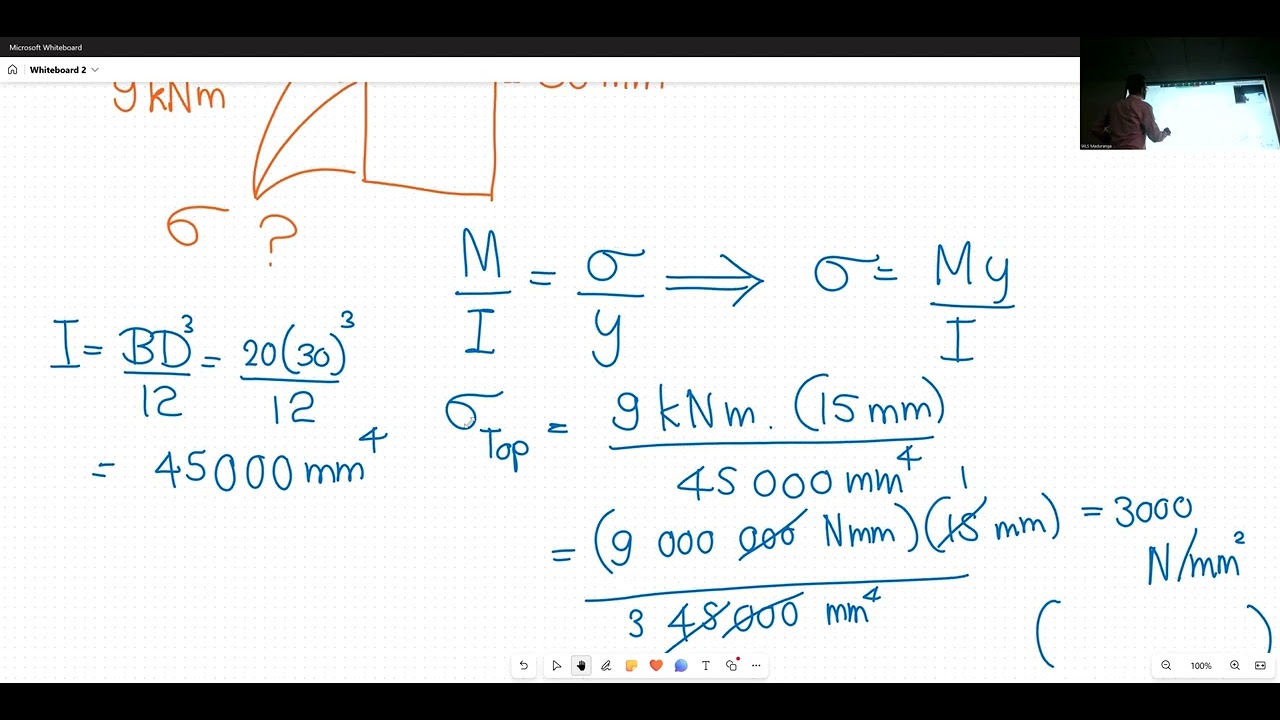 Microsoft Whiteboard
Whiteboard 2
9 kNm
σ ?
M/I = σ/y ⟹ σ = My/I
I = BD³/12 = 20(30)³/12
= 45000 mm⁴
σ Top = 9 kNm. (15 mm) / 45 000 mm⁴
= (9 000 000 Nmm)(15 mm) / 45 000 mm⁴ = 3000 N/mm²
1
3
( )
WLS Maduranga
T
100%